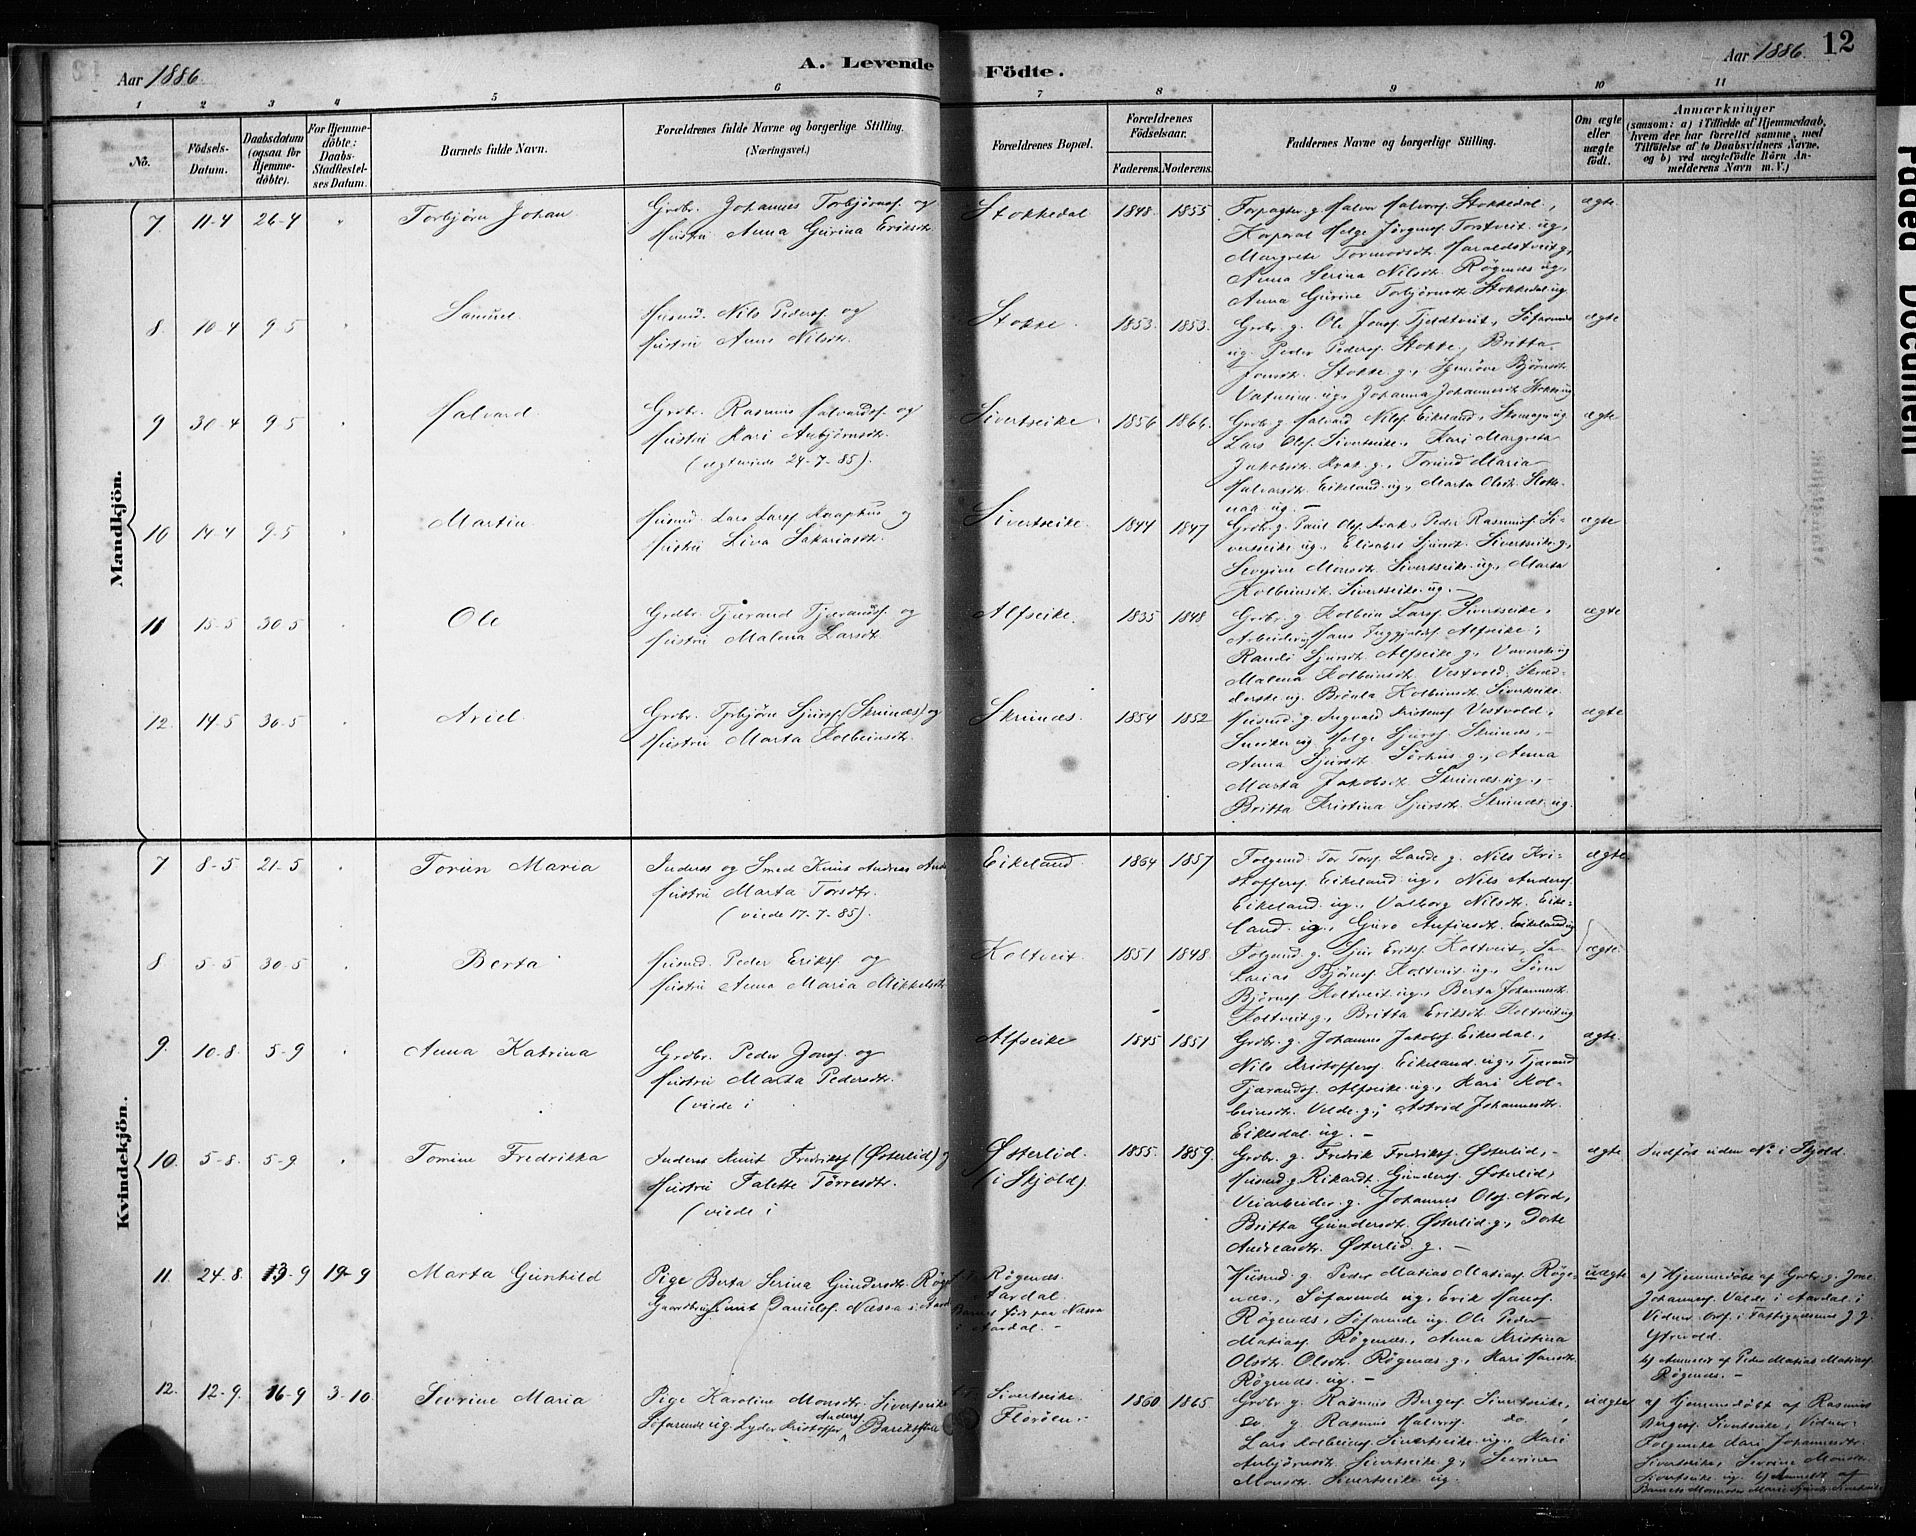 Aar 1886.
A. Levende Födte.
Aar 1886.
12
1 2 3 4 5 6 7 8 9 10 11
No.
Födsels-Datum.
Daabsdatum (ogsaa for Hjemme-døbte).
For Hjemme-döbte: Daabs-Stadfæstel-ses Datum.
Barnets fulde Navn.
Forældrenes fulde Navne og borgerlige Stilling.
(Næringsvei.)
Forældrenes Bopæl.
Forældrenes Födselsaar.
Faderens. Moderens.
Faddernes Navne og borgerlige Stilling.
Om ægte eller uægte födt.
Anmærkninger
(saasom: a) i Tilfælde af Hjemmedaab,
hvem der har forrettet samme, med
Tilföielse af to Daabsvidners Navne,
og b) ved uægtefödte Börn An-
melderens Navn m. V.)
Mandkjön.
7 11-4 26-4 " Torbjörn Johan
Grdbr. Johannes Torbjörnsf. og
Hustru Anna Gurina Eriksdtr.
Stokkedal 1848. 1855
Forpagter g. Halvor Halvorsf. Stokkedal,
Korporal Helge Jörgensf. Torstveit ug.,
Margrete Tormodsdt. Haraldstveit g.,
Anna Serina Nilsdt. Røgenæs ug.,
Anna Gurine Torbjörnsdt. Stokkedal ug.
ægte
8. 10-4 9-5 " Samuel
Husmd. Nils Pedersf. og
Hustru Anna Nilsdt.
Stokke. 1853. 1853.
Grdbr. g. Ole Jonsf. Tjeldtveit, Söfarende
ug. Peder Pedersf. Stokke, Britta
Jonsdt. Stokke g., Synnöve Björnsdt.
Vatneim ug., Johanna Johannesdt. Stokke ug
ægte
9 30-4 9-5 " Halvard.
Grdbr. Rasmus Halvardsf. og
Hustru Kari Anbjörnsdt.
(ægteviede 24-7-85).
Sivertseike. 1856 1866.
Grdbr. g. Halvard Nilsf. Eikeland, Skomager ug
Lars Olsf. Sivertseike, Kari Margreta
Jakobsdt. Krak g., Torund Maria
Halvarsdt. Eikeland ug., Marta Olsdt. Stokke-
naa ug. –
ægte
10 14-4 9-5 " Martin.
Husmd. Lars Larsf. Kaaphus og
Hustru Lina Sakariasdt.
Sivertseike. 1844 1847
Grdbr. g. Paul Olsf. Krak, Peder Rasmusf. Si-
vertseike ug., Elisabet Sjursdt. Sivertseike g.,
Sevrine Monsdt. Sivertseike ug., Marta
Kolbeinsdt. Sivertseike ug. –
ægte
11 15-5 30-5 " Ole
Grdbr. Tjerand Tjerandsf. og
Hustru Malena Larsdt.
Alfseike. 1835 1848
Grdbr. g. Kolbein Larsf. Sivertseike,
Arbeider ug Hans Inggjeldsf. Alfseike,
Randi Sjursdt. Alfseike g., Væverske ug
Malena Kolbeinsdt. Vestvold, Skræd-
derske ug. Brönla Kolbeinsdt. Sivertseike
ægte
12. 14-5 30-5 " Ariel.
Grdbr. Torbjörn Sjursf. (Skrunæs) og
Hustru Marta Kolbeinsdt.
Skrunæs. 1854 1852
Husmd. g. Ingvald Kristensf. Vestvold,
Snekker ug Helge Sjursf. Skrunæs, –
Anna Sjursdt. Sörhus g., Anna
Marta Jakobsdt. Skrunæs ug., –
Britta Kristina Sjursdt. Skrunæs ug.
ægte
Kvindekjön.
7 8-5. 21-5 " Torun Maria
Inderst og Smed Knut Andreas And
Hustru Marta Torsdtr.
(viede 17-7-85).
Eikeland. 1864 1857
Folgemd. Tor Torsf. Lande g. Nils Kri-
stoffersf. Eikeland ug., Nils Andersf.
Eikeland ug., Valborg Nilsdt. Eike-
land ug., Guro Anfinsdt. Eikeland ug
ægte
8 5-5 30-5 " Berta
Husmd. Peder Eriksf. og
Hustru Anna Maria Mikkelsdt.
Koltveit. 1851 1848.
Folgemd. g. Sjur Eriksf. Koltveit, Sa-
karias Björnsf. Koltveit ug., Sören
Björnsf. Koltveit ug., Berta Johannesdt.
Koltveit g., Britta Eriksdt. Koltveit ug
ægte
9. 10-8. 5-9 " Anna Katrina
Grdbr. Peder Jonsf. og
Hustru Marta Pedersdt.
(viede i
Alfseike 1845 1851
Grdbr. g. Johannes Jakobsf. Eikesdal,
Nils Kristoffersf. Eikeland ug., Tjærand
Tjærandsf. Alfseike ug., Kari Kol-
beinsdt. Velde g., Astrid Johannesdtr.
Eikesdal ug. –
ægte.
10. 5-8. 5-9 " Tomine Fredrikka
Inderst Knut Fredriksf. (Østerlid) og
Hustru Talette Törresdtr.
(viede i
Østerlid.
(i Skjold).
1855. 1859.
Grdbr. g. Fredrik Fredriksf. Østerlid, –
Husmd. g. Rikardt Gundersf. Østerlid,
Veiarbeider g. Johannes Olsf. Nord,
Britta Gundersdt. Østerlid g., Dorte
Andreasdtr. Østerlid g. –
ægte
Indført uden No i Skjold.
11. 24-8. 13-9 19-9 Marta Gunhild
Pige Berta Serina Gundersdtr. Røge
Gaardbrug. Knut Danielsf. Næssa i Aard
Røgenæs.
Aardal.
Barnet född paa Næssa
i Aardal. –
Husmd. g. Peder Matias Matiasf. Røge-
næs, Söfarende ug. Erik Hansf.
Røgenæs, Söfarende ug. Ole Peder
Matiasf. Røgenæs, Anna Kristina
Olsdt. Olsdt. Røgenæs g., Kari Hansdt.
Røgenæs ug. –
uægte
a) Hjemmedöbt af Grdbr. g. Jone
Johannesf. Valde i Aardal i
Vidner Ordf. i Fattigvæsenet J. J.
Ytrevold.
b) Anmeldt af Peder Matias Matiasf.
Røgenæs. –
12. 12-9. 16-9 3-10 Sevrine Maria
Pige Karoline Monsdt. Sivertseike
Söfarende ug. Lyder Kristoffer Andersf.
Sivertseike
Florøen.
1860 1865
Grdbr. g. Rasmus Bergesf. Sivertseike,
do g. Rasmus Halvorsf. do,
Lars Kolbeinsf. Sivertseike ug., Kari
Anbjörnsdt. Sivertseike g., Sevrine
Monsdt. Sivertseike ug.
uægte
a) Hjemmedøbt af Rasmus
Bergesf. Sivertseike, Vidner
Folgenke Kari Johannesdt.
Sivertseike, Sevrine Monsdt.
Sivertseike ug. b) Anmeldt af
Faded Document